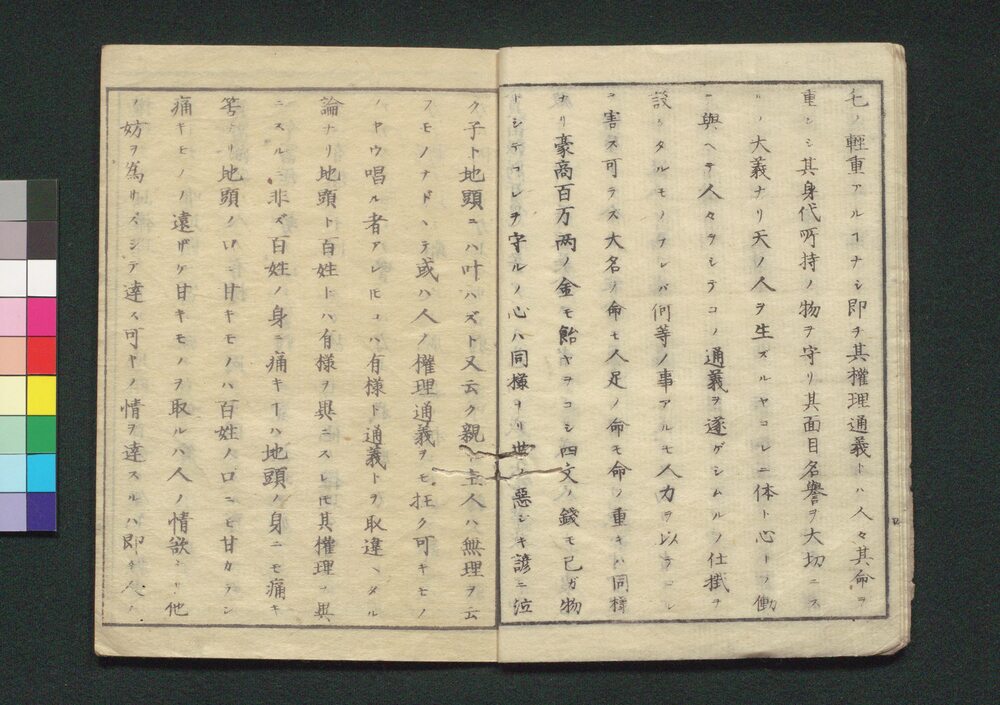 毛ノ輕重アルヿナシ即チ其權理通義トハ人々其命ヲ
重ンシ其身代所持ノ物ヲ守リ其面目名譽ヲ大切ニス
ルノ大義ナリ天ノ人ヲ生ズルヤコレニ体ト心トノ働
ヲ與ヘテ人々ヲシテコノ通義ヲ遂ゲシムルノ仕掛ヲ
設ケタルモノナレバ何等ノ事アルモ人力ヲ以テコレ
ヲ害ス可ラズ大名ノ命モ人足ノ命モ命ノ重キハ同樣
ナリ豪商百万两ノ金モ飴ヤヲコシ四文ノ錢モ己ガ物
トシテコレヲ守ルノ心ハ同様ナリ世ノ惡シキ諺ニ泣
ク子ト地頭ニハ叶ハズト又云ク親ト主人ハ無理ヲ云
フモノナドヽテ或ハ人ノ權理通義ヲモ枉ク可キモノ
ノヤウ唱ル者アレ𪜈コハ有様ト通義トヲ取違ヘタル
論ナリ地頭ト百姓トハ有様ヲ異ニスレ𪜈其權理ヲ異
ニスルニ非ズ百姓ノ身ニ痛キヿハ地頭ノ身ニモ痛キ
筈ナリ地頭ノ口ニ甘キモノハ百姓ノ口ニモ甘カラン
痛キモノヲ遠ザケ甘キモノヲ取ルハ人ノ情欲ナリ他
ノ妨ヲ爲サズシテ達ス可キノ情ヲ達スルハ即チ人ノ